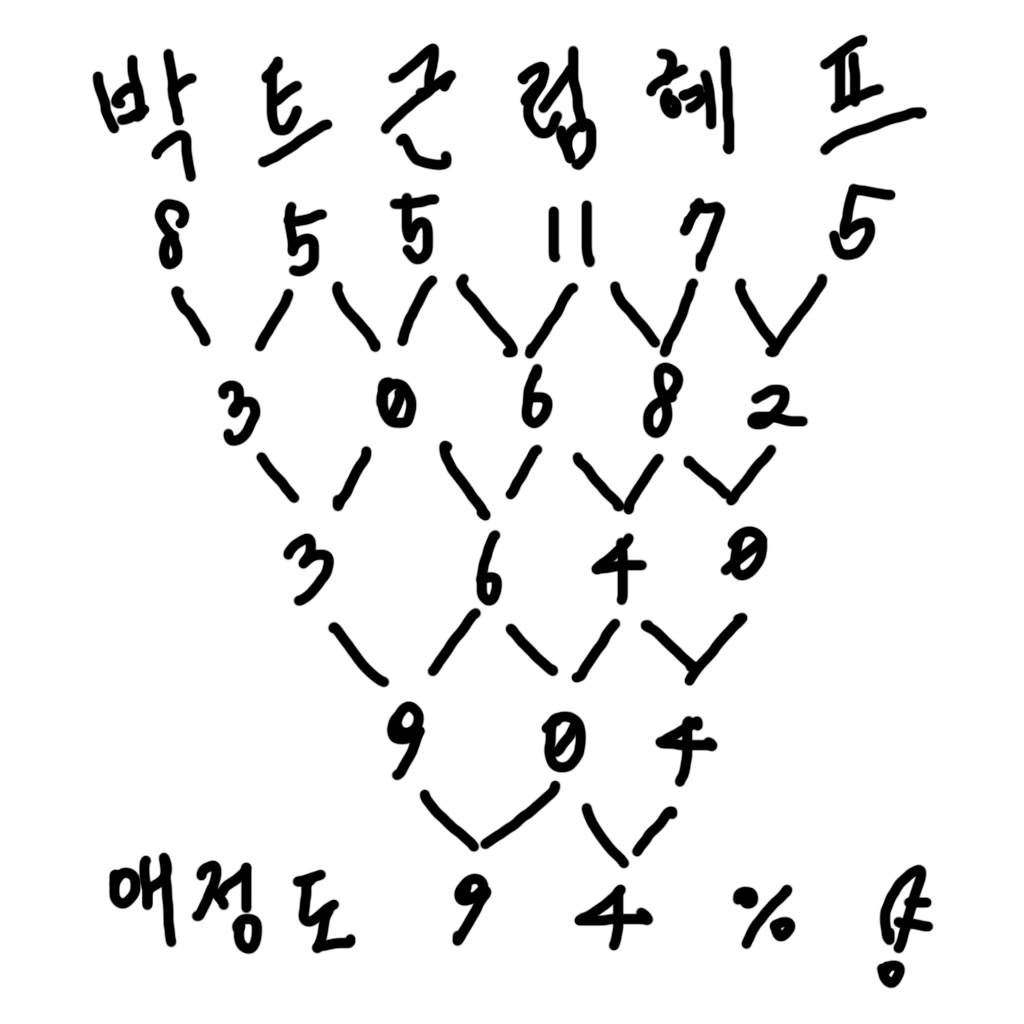 박 트 근 럼 혜 프
8 5 5 11 7 5
3 0 6 8 2
3 6 4 0
9 0 4
애정도 9 4 %